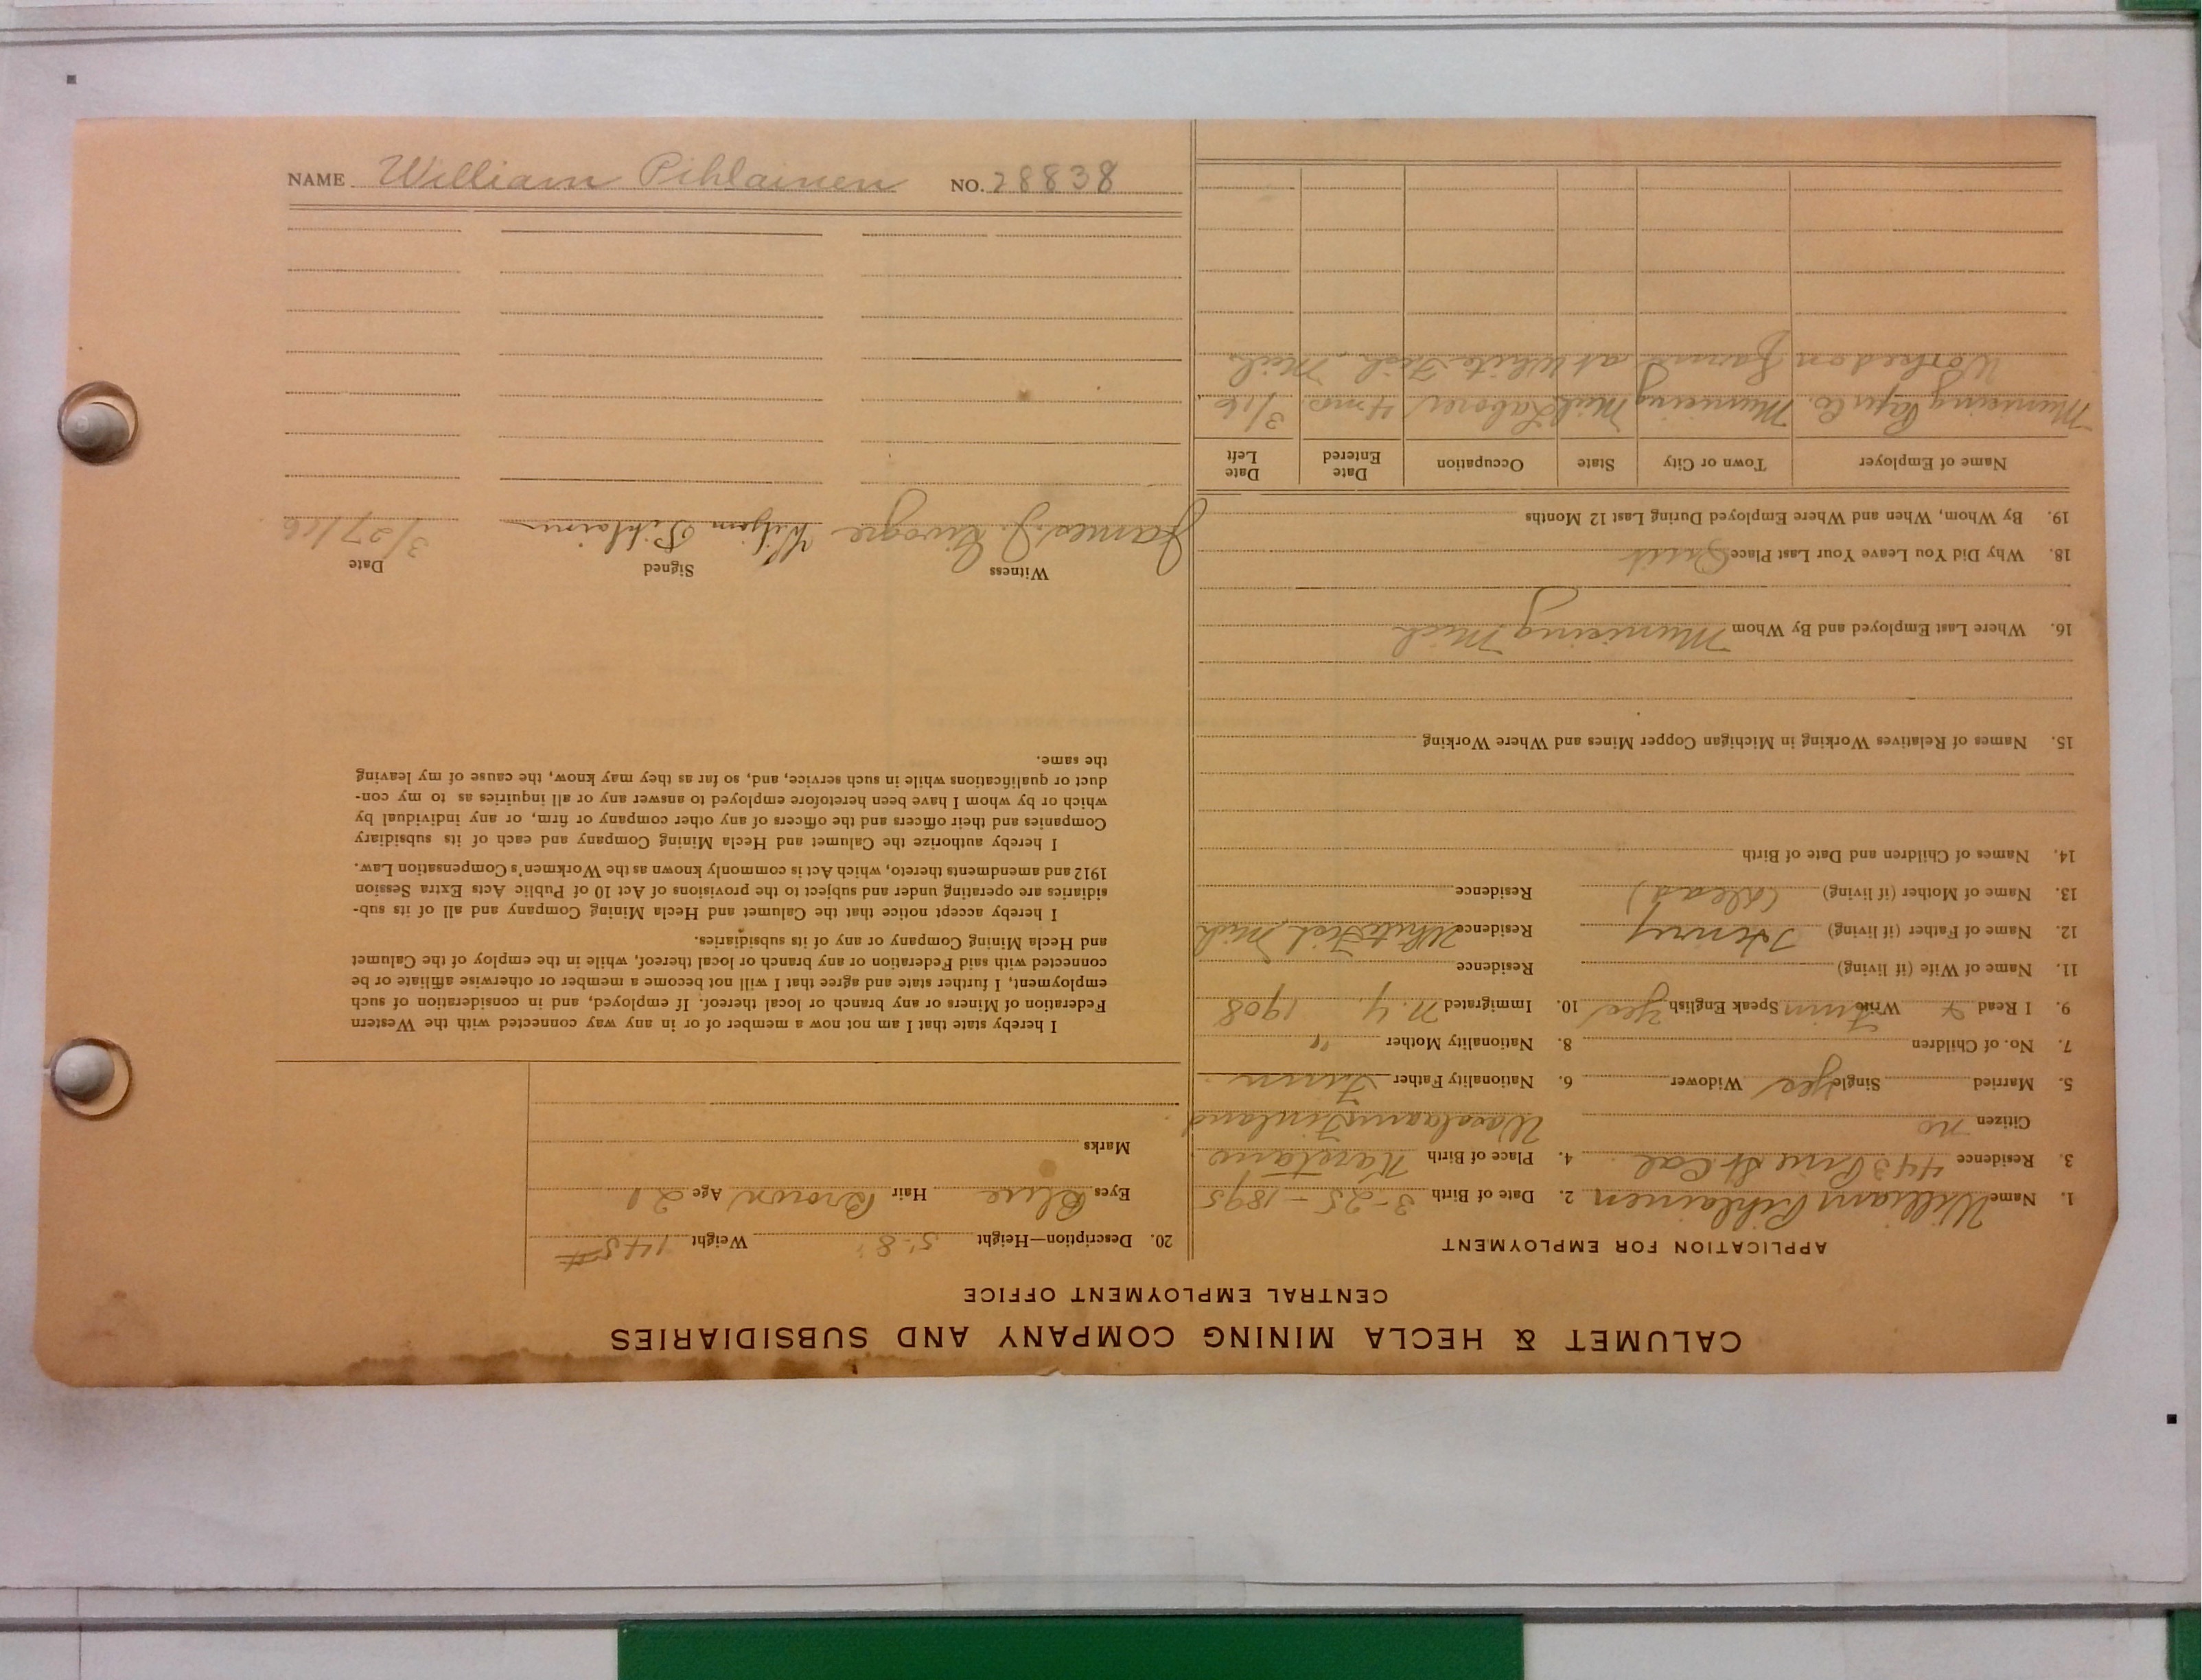 CALUMET & HECLA MINING COMPANY AND SUBSIDIARIES
CENTRAL EMPLOYMENT OFFICE
APPLICATION FOR EMPLOYMENT
1. Name William Pihlainen 2. Date of Birth 3-25-1895
3. Residence 443 Pine St Cal 4. Place of Birth
Citizen no Finland
5. Married Single Yes Widower 6. Nationality Father Finn
7. No. of Children 8. Nationality Mother "
9. I Read & Write Finn Speak English Yes 10. Immigrated N.Y. 1908
11. Name of Wife (if living) Residence
12. Name of Father (if living) Henry Residence White Fish, Mich
13. Name of Mother (if living) (dead) Residence
14. Names of Children and Date of Birth
15. Names of Relatives Working in Michigan Copper Mines and Where Working
16. Where Last Employed and By Whom Munising Mich
18. Why Did You Leave Your Last Place Quit
19. By Whom, When and Where Employed During Last 12 Months
Name of Employer Town or City State Occupation Date Entered Date Left
Munising Paper Co. Munising Mich Laborer 4 mos. 3/16
Worked on Farm at White Fish, Mich.
20. Description—Height 5-8" Weight 145#
Eyes Blue Hair Brown Age 21
Marks
I hereby state that I am not now a member of or in any way connected with the Western
Federation of Miners or any branch or local thereof. If employed, and in consideration of such
employment, I further state and agree that I will not become a member or otherwise affiliate or be
connected with said Federation or any branch or local thereof, while in the employ of the Calumet
and Hecla Mining Company or any of its subsidiaries.
I hereby accept notice that the Calumet and Hecla Mining Company and all of its sub-
sidiaries are operating under and subject to the provisions of Act 10 of Public Acts Extra Session
1912 and amendments thereto, which Act is commonly known as the Workmen's Compensation Law.
I hereby authorize the Calumet and Hecla Mining Company and each of its subsidiary
Companies and their officers and the officers of any other company or firm, or any individual by
which or by whom I have been heretofore employed to answer any or all inquiries as to my con-
duct or qualifications while in such service, and, so far as they may know, the cause of my leaving
the same.
Witness Signed Date
James J. Pihlainen 3/27/16
NAME William Pihlainen NO. 28838